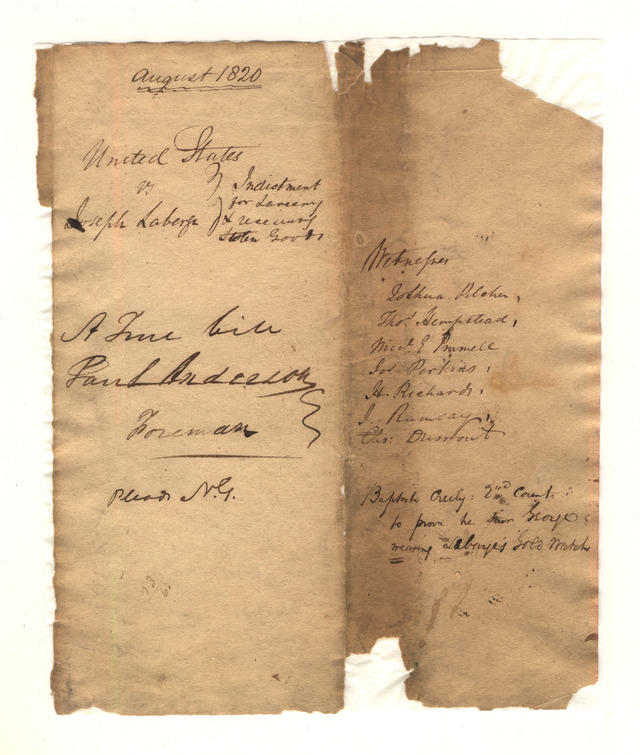 August 1820
United States
vs
Indictment
for Larceny
Joseph Laberge
& receiving
Stolen Goods
A True bill
Paul Anderson
Foreman
Pleads N.G.
Witnesses
Joshua Pilcher,
Thos. Hempstead,
Micl. E Immell
Jos. Perkins,
H. Richards,
J. Ramsay,
Dumont
Baptiste 2nd Count.
to prove he saw George
wearing Laberge's Gold Watch